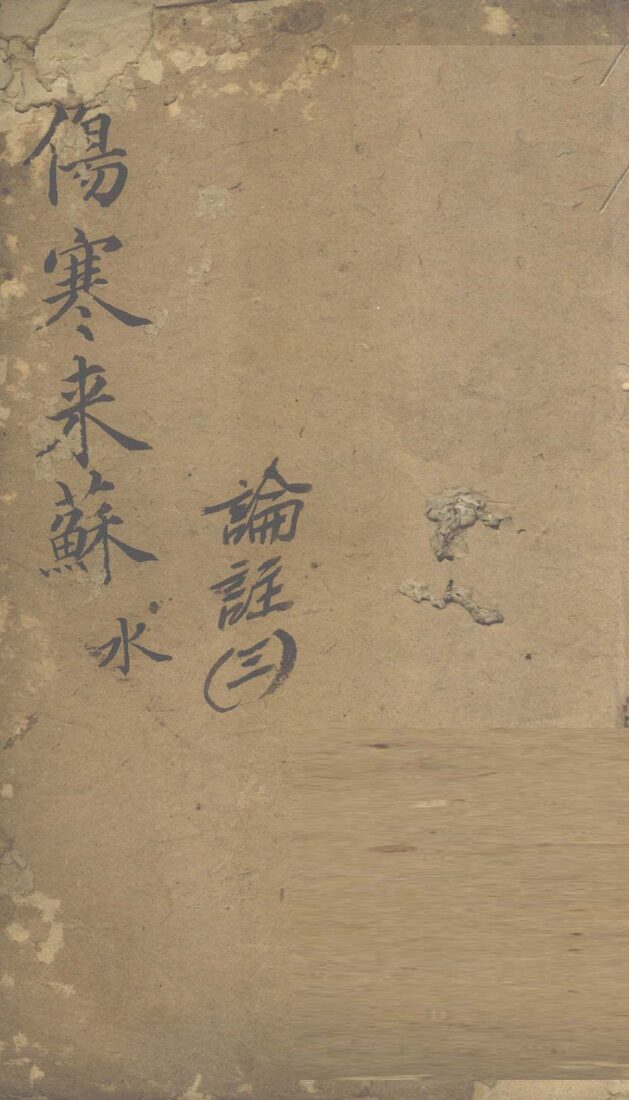 論註(三)
傷寒来蘇 水